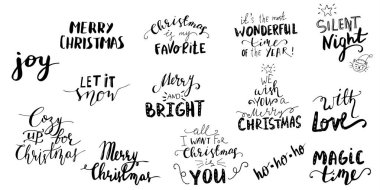 MERRY
CHRISTMAS
Christmas
is my
FAVORITE
it's the most
WONDERFUL
time
OF THE YEAR!
SILENT
Night
joy
LET IT
Snow
Merry
AND
BRIGHT
WE
wish
YOU a
Merry
CHRISTMAS
with
Love
Cozy
up for
Christmas
Merry
Christmas
all
I WANT FOR
Christmas
is
YOU
ho-ho-ho
MAGIC
time